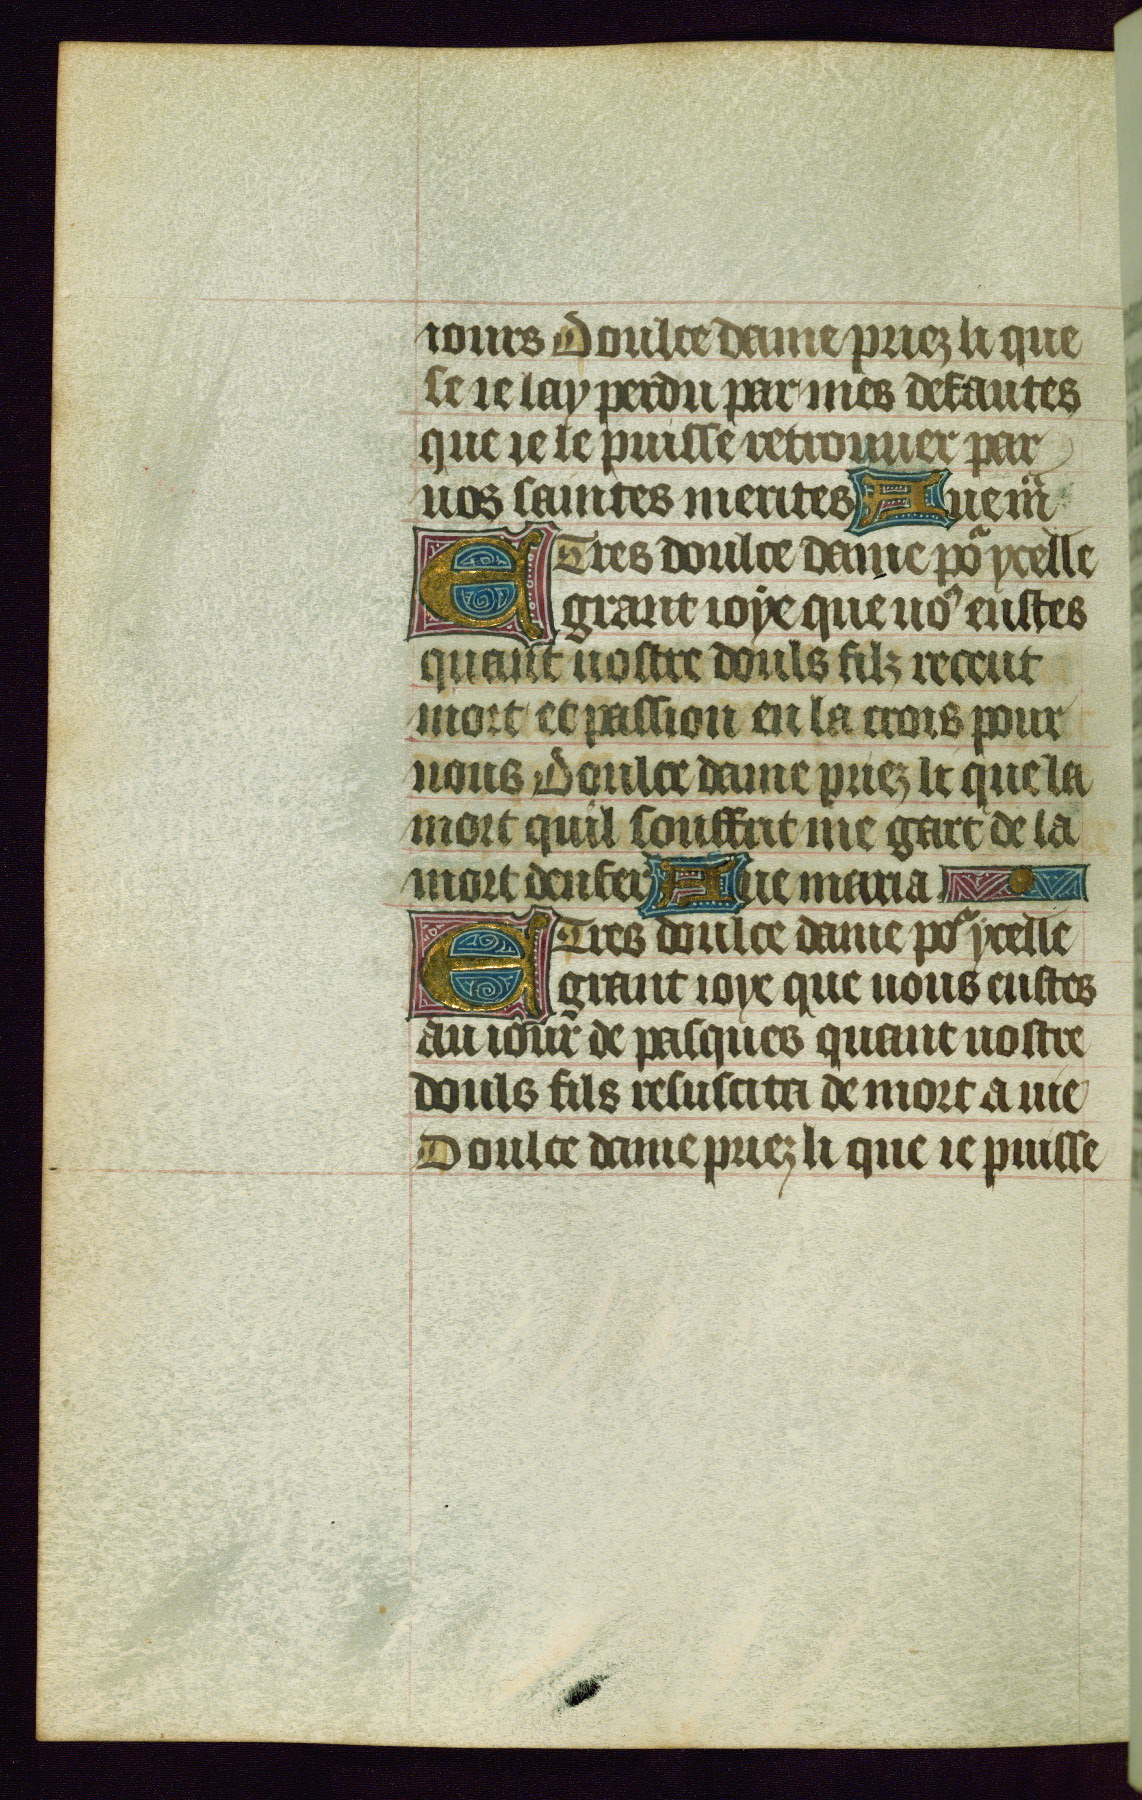 iours Doulce dame priez li que
se ie lay perdu par mes defautes
que ie le puisse retrouuer par
uos saintes merites Aue m̃
E Tres doulce dame põ ycelle
grant ioye que uo⁹ eustes
quant uostre douls filz recent
mort et passion en la crois pour
nous Doulce dame priez li que la
mort quil souffrit me gart de la
mort denfer Aue maria
E Tres doulce dame põ ycelle
grant ioye que uous eustes
au iour de pasques quant uostre
douls fils resuscita de mort a uie
Doulce dame priez li que ie puisse